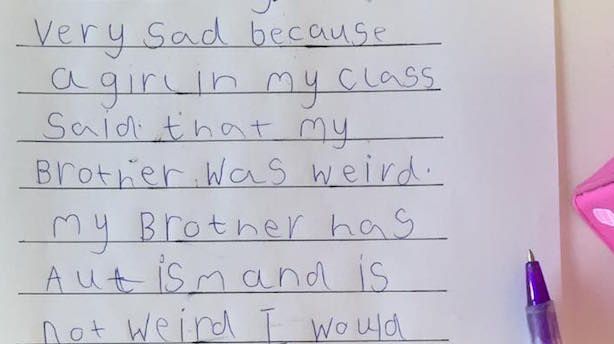 very sad because
a girl in my class
said that my
Brother was weird.
my Brother has
Autism and is
not weird I would